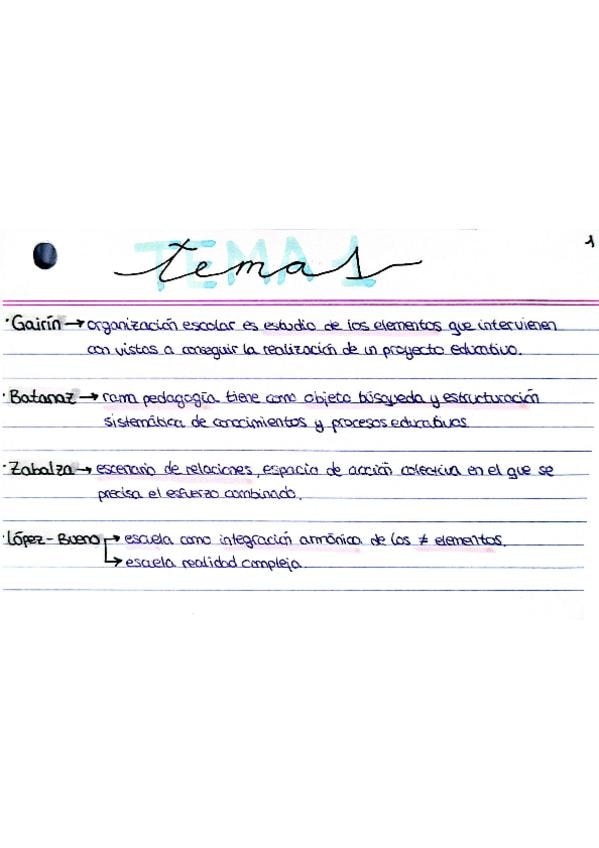 TEMA 1
tema 1
1
· Gairín → organización escolar es estudio de los elementos que intervienen
con vistas a conseguir la realización de un proyecto educativo.
· Batanaz → rama pedagogía tiene como objeto búsqueda y estructuración
sistemática de conocimientos y procesos educativos.
· Zabalza → escenario de relaciones, espacio de acción colectiva en el que se
precisa el esfuerzo combinado.
· López-Bueno → escuela como integración armónica de los ≠ elementos.
↳ escuela realidad compleja.